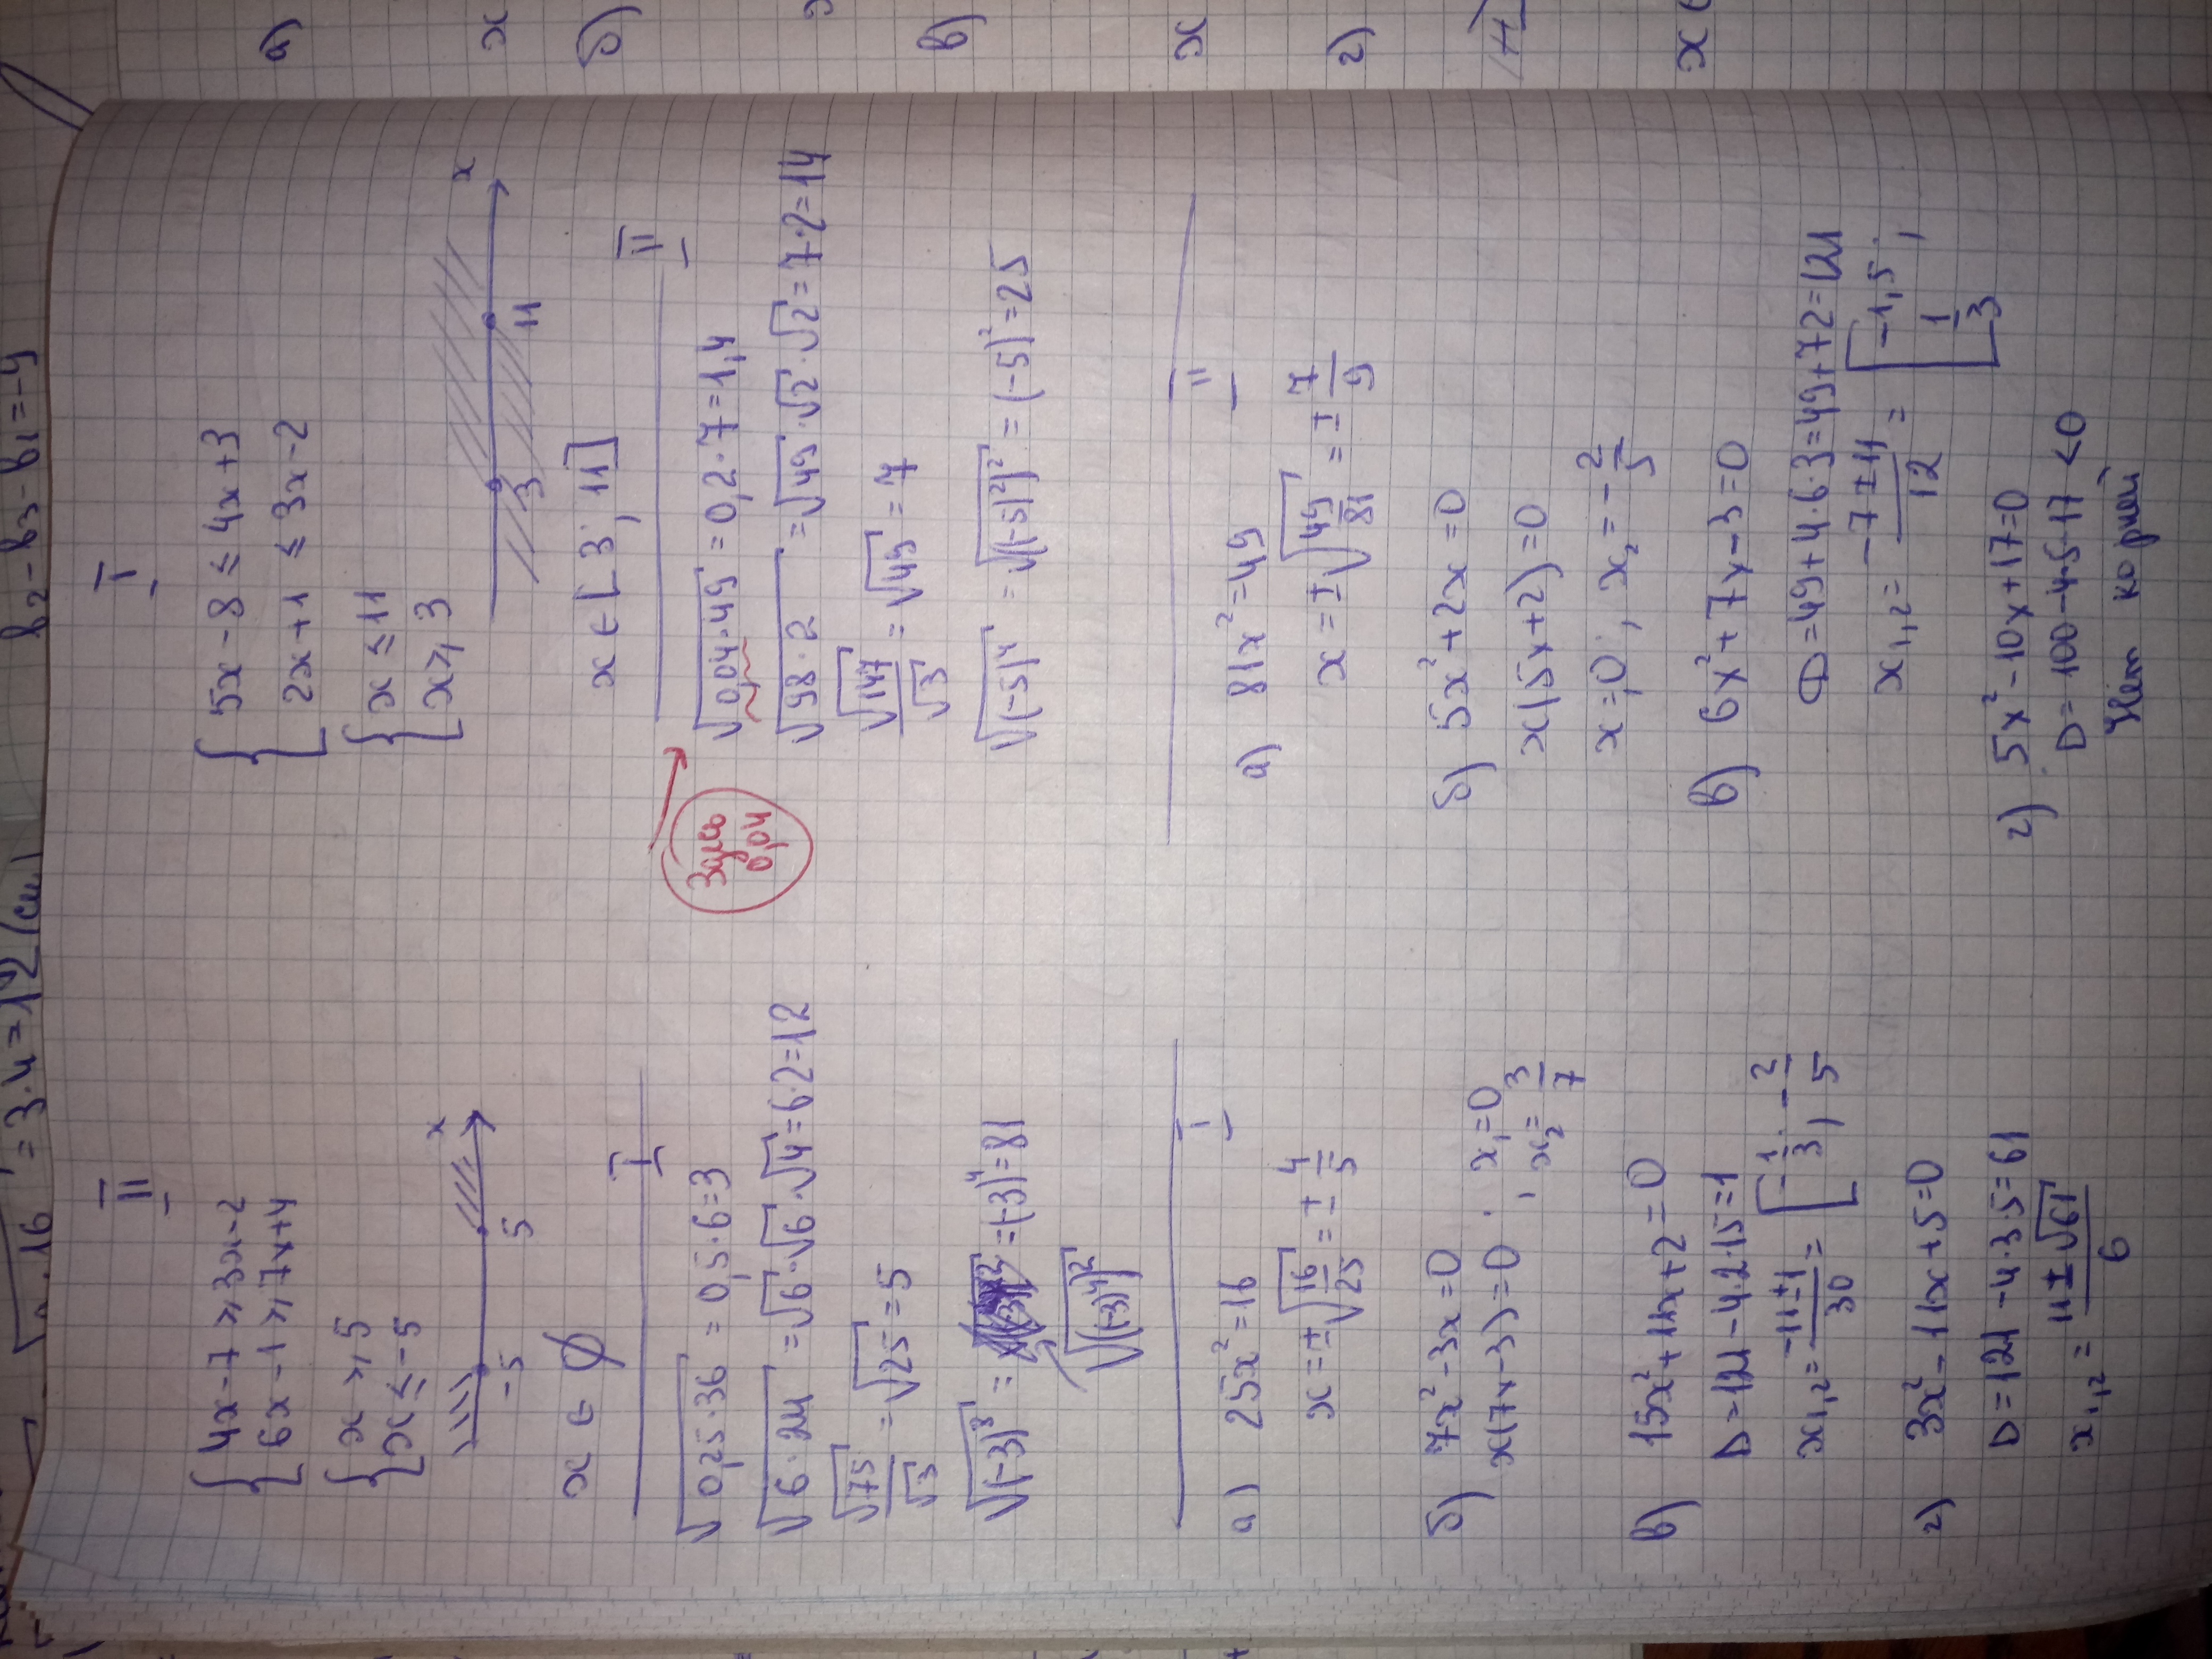 16 = 3·4 = 12 (см)
b₂ - b₃ - b₁ = -4
II
{ 4x - 7 ⩾ 3x - 2
6x - 1 ⩾ 7x + 4
{ x ⩾ 5
x ≤ -5
-5 5 x
x ∈ ∅
I
√(0,25·36) = 0,5·6 = 3
√(6·24) = √6·√6·√4 = 6·2 = 12
√75/√3 = √25 = 5
√((-3)⁸) = √(((-3)⁴)²) = (-3)⁴ = 81
I
а) 25x² = 16
x = ±√(16/25) = ± 4/5
б) 7x² - 3x = 0
x(7x - 3) = 0 ; x₁ = 0, x₂ = 3/7
в) 15x² + 11x + 2 = 0
D = 121 - 4·2·15 = 1
x₁,₂ = (-11 ± 1)/30 = [ -1/3; -2/5
г) 3x² - 11x + 5 = 0
D = 121 - 4·3·5 = 61
x₁,₂ = (11 ± √61)/6
I
{ 5x - 8 ≤ 4x + 3
2x + 1 ≤ 3x - 2
{ x ≤ 11
x ⩾ 3
3 11 x
x ∈ [3; 11]
II
Здесь 0,04
√(0,04·49) = 0,2·7 = 1,4
√(98·2) = √49·√2·√2 = 7·2 = 14
√147/√3 = √49 = 7
√((-5)⁴) = √(((-5)²)²) = (-5)² = 25
II
а) 81x² = 49
x = ±√(49/81) = ± 7/9
б) 5x² + 2x = 0
x(5x + 2) = 0
x₁ = 0; x₂ = -2/5
в) 6x² + 7x - 3 = 0
D = 49 + 4·6·3 = 49 + 72 = 121
x₁,₂ = (-7 ± 11)/12 = [ -1,5; 1/3
г) 5x² - 10x + 17 = 0
D = 100 - 4·5·17 < 0
Нет корней
а)
x
б)
в)
x
г)
x